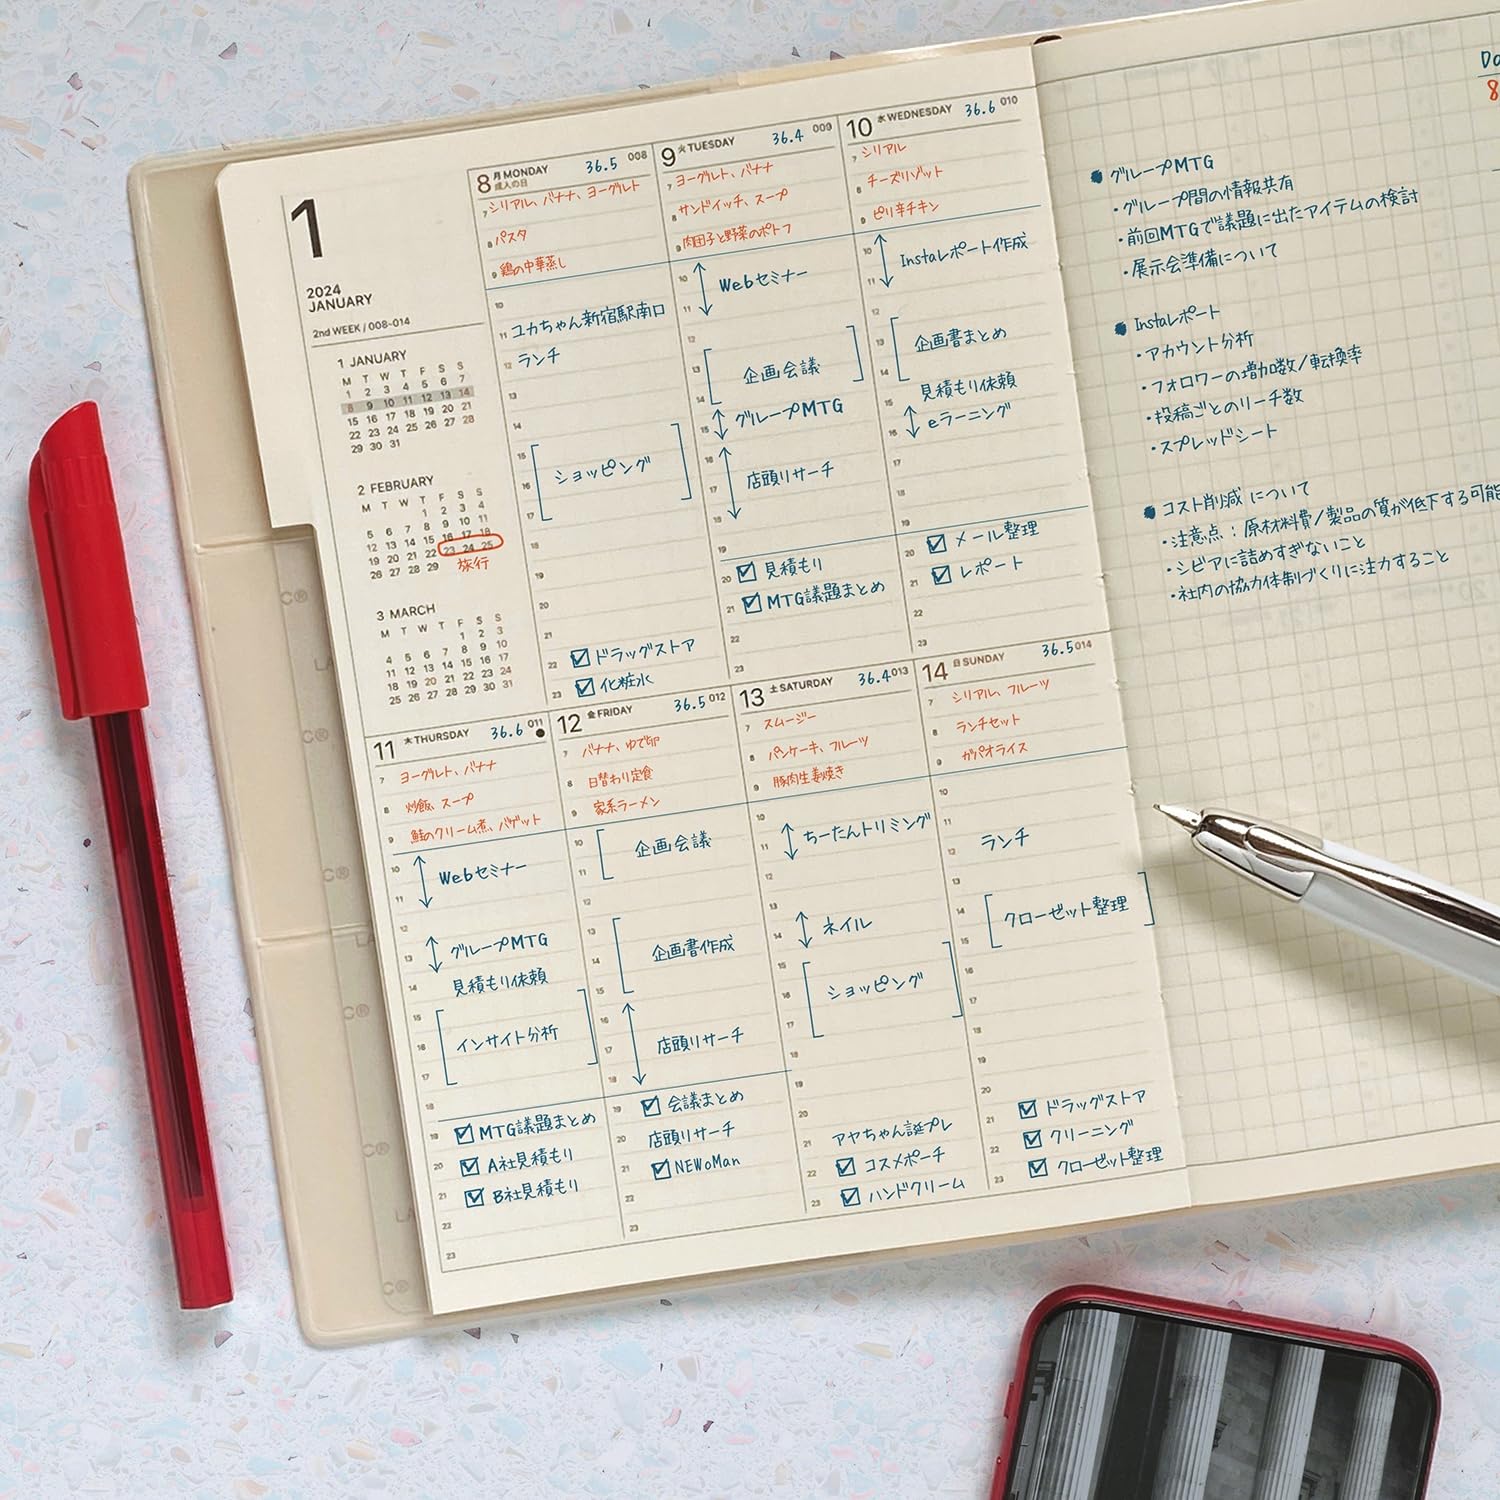 1
2024
JANUARY
2nd WEEK / 008-014
1 JANUARY
M T W T F S S
1 2 3 4 5 6 7
8 9 10 11 12 13 14
15 16 17 18 19 20 21
22 23 24 25 26 27 28
29 30 31
2 FEBRUARY
M T W T F S S
1 2 3 4
5 6 7 8 9 10 11
12 13 14 15 16 17 18
19 20 21 22 23 24 25
26 27 28 29
旅行
3 MARCH
M T W T F S S
1 2 3
4 5 6 7 8 9 10
11 12 13 14 15 16 17
18 19 20 21 22 23 24
25 26 27 28 29 30 31
8 月 MONDAY 36.5 008
成人の日
7 シリアル、バナナ、ヨーグルト
8 パスタ
9 鶏の中華蒸し
10
11 ユカちゃん新宿駅南口
12 ランチ
13
14
15
ショッピング
16
17
18
19
20
21
22 ☑ ドラッグストア
23 ☑ 化粧水
9 火 TUESDAY 36.4 009
7 ヨーグルト、バナナ
8 サンドイッチ、スープ
9 肉団子と野菜のポトフ
10 Webセミナー
11
12
13 企画会議
14
15 グループMTG
16
17 店頭リサーチ
18
19
20 ☑ 見積もり
21 ☑ MTG議題まとめ
22
23
10 水 WEDNESDAY 36.6 010
7 シリアル
8 チーズリゾット
9 ピリ辛チキン
10 Instaレポート作成
11
12
13 企画書まとめ
14
15 見積もり依頼
16 eラーニング
17
18
19
20 ☑ メール整理
21 ☑ レポート
22
23
11 木 THURSDAY 36.6 011
7 ヨーグルト、バナナ
8 炒飯、スープ
9 鮭のクリーム煮、バゲット
10 Webセミナー
11
12
13 グループMTG
14 見積もり依頼
15
16 インサイト分析
17
18
19 ☑ MTG議題まとめ
20 ☑ A社見積もり
21 ☑ B社見積もり
22
23
12 金 FRIDAY 36.5 012
7 バナナ、ゆで卵
8 日替わり定食
9 家系ラーメン
10 企画会議
11
12
13 企画書作成
14
15
16
17 店頭リサーチ
18
19 ☑ 会議まとめ
20 店頭リサーチ
21 ☑ NEWoMan
22
23
13 土 SATURDAY 36.4 013
7 スムージー
8 パンケーキ、フルーツ
9 豚肉生姜焼き
10
11 ちーたんトリミング
12
13
14 ネイル
15
16 ショッピング
17
18
19
20
21 アヤちゃん誕プレ
22 ☑ コスメポーチ
23 ☑ ハンドクリーム
14 日 SUNDAY 36.5 014
7 シリアル、フルーツ
8 ランチセット
9 ガパオライス
10
11
12 ランチ
13
14 クローゼット整理
15
16
17
18
19
20
21 ☑ ドラッグストア
22 ☑ クリーニング
23 ☑ クローゼット整理
● グループMTG
・グループ間の情報共有
・前回MTGで議題に出たアイテムの検討
・展示会準備について
● Instaレポート
・アカウント分析
・フォロワーの増加数/転換率
・投稿ごとのリーチ数
・スプレッドシート
● コスト削減 について
・注意点：原材料費/製品の質が低下する可能
・シビアに詰めすぎないこと
・社内の協力体制づくりに注力すること